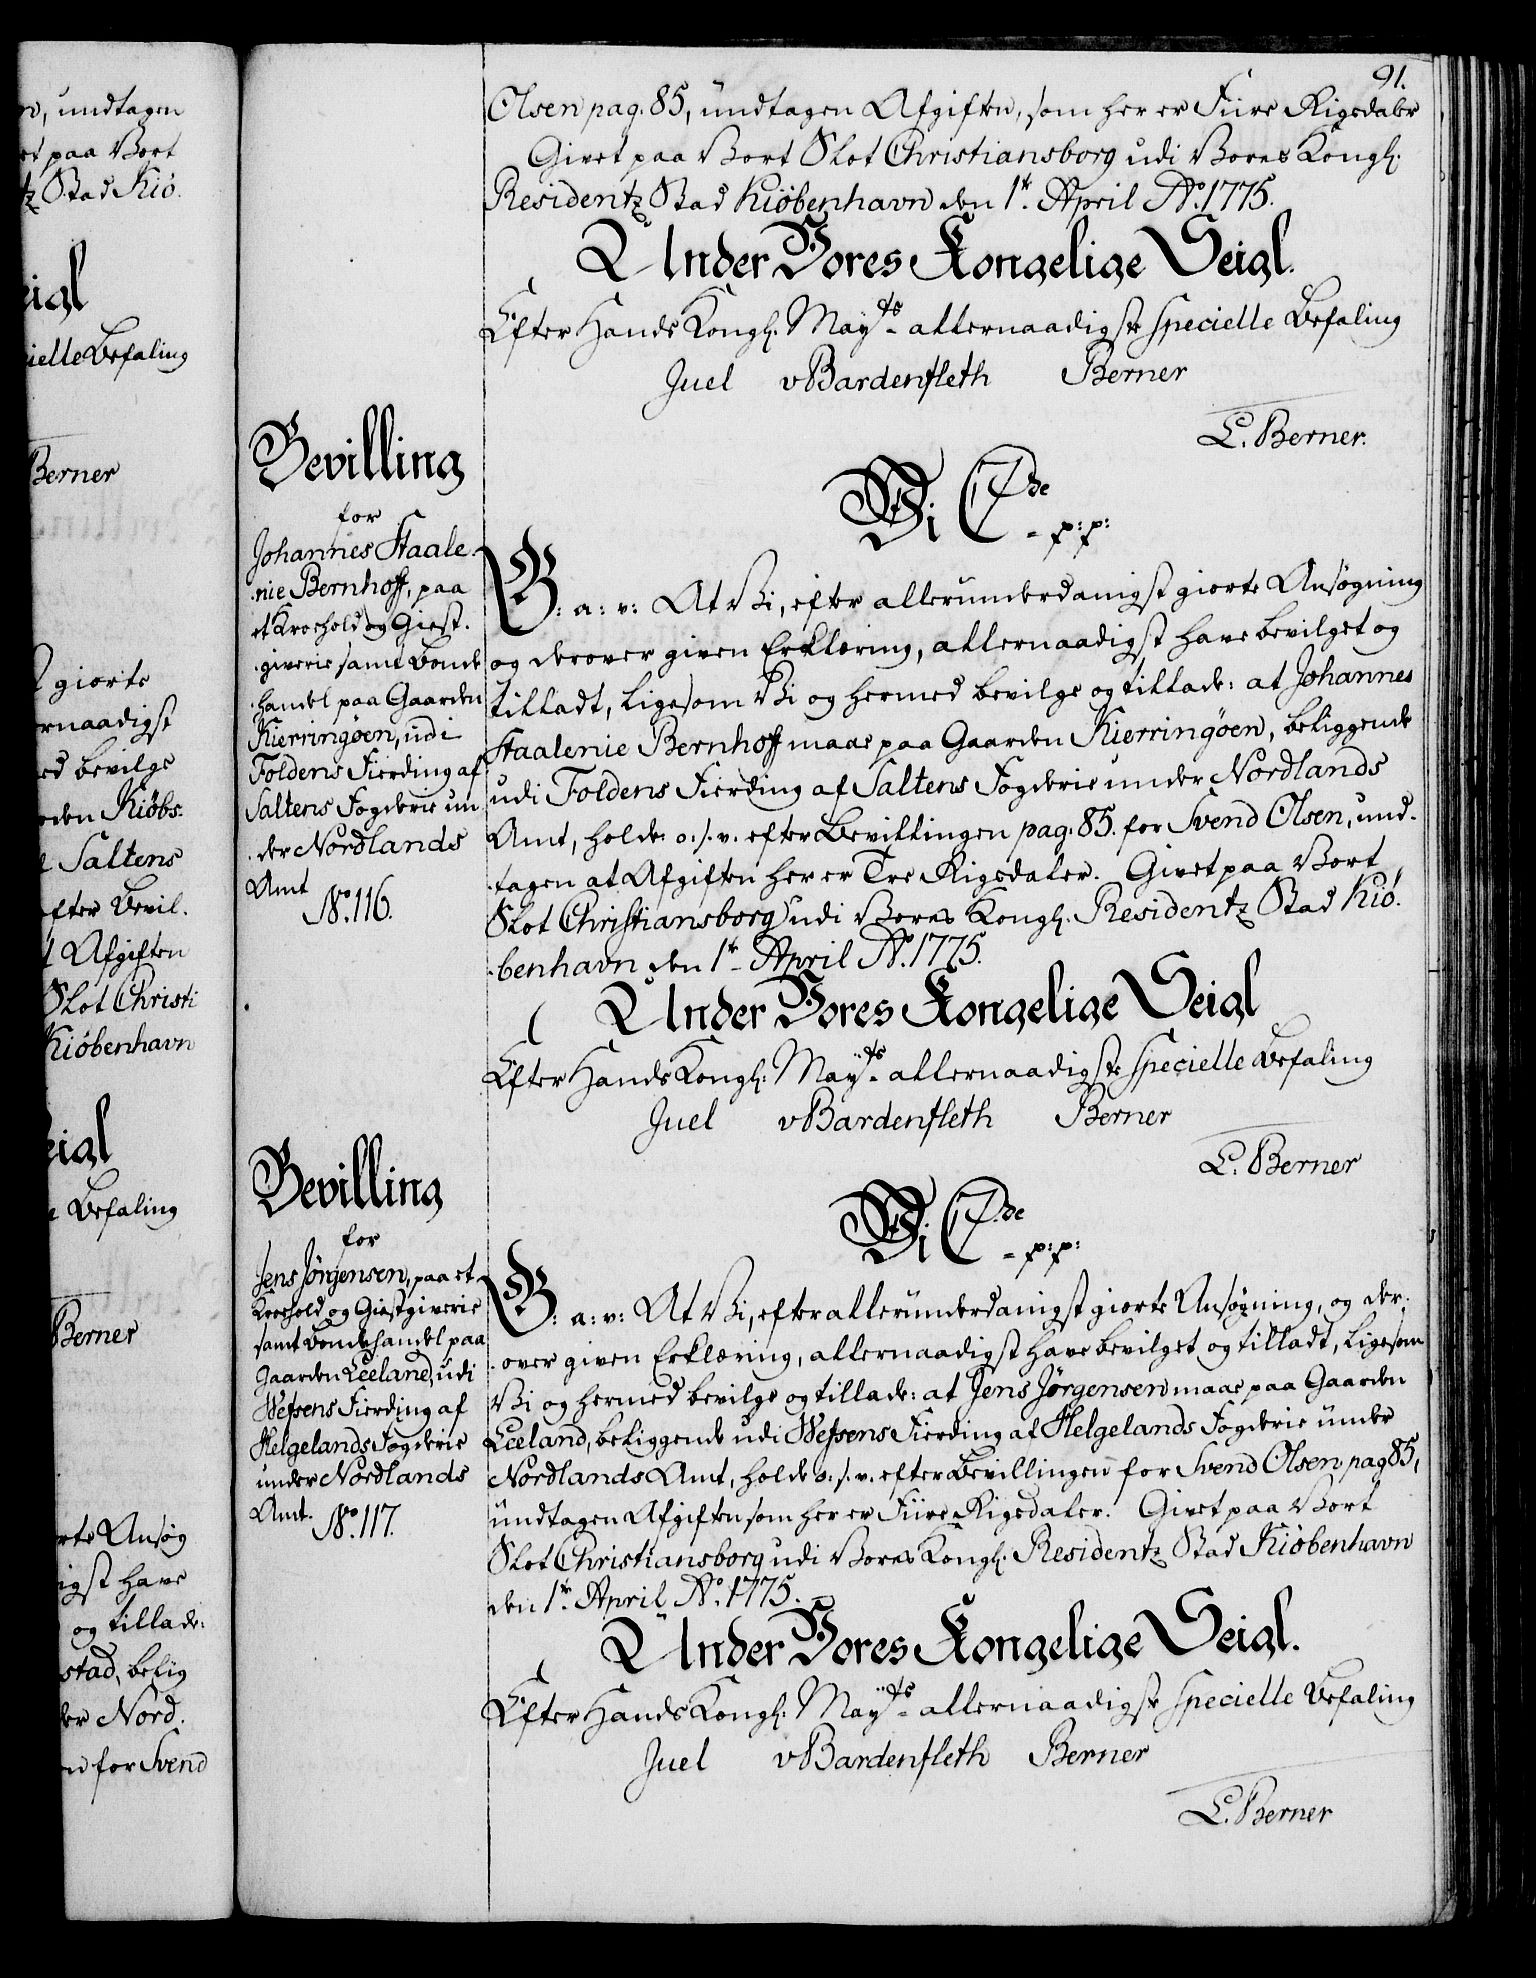 91.
Olsen pag: 85, undtagen Afgiften, som her er Fiire Rigsdaler
Givet paa Vort Slot Christiansborg udi Vores Kongl:
Residentz Stad Kiöbenhavn den 1te April Ao. 1775.
Under Vores Kongelige Seigl.
Efter Hands Kongl: Mayts allernaadigste specielle Befaling
Juel vBardenfleth Berner
L. Berner.
Bevilling
for
Johannes Staale-
nie Bernhoff, paa
et Kroehold og Giest-
giverie samt Bonde
handel paa Gaarden
Kierringøen, udi
Foldens Fierding af
Saltens Fogderie un
der Nordlands
Amt
No. 116.
Vi C 7de - p: p:
G: a: v: At Vi, efter allerunderdanigst giorte Ansøgning
og derover given Erklæring, allernaadigst have bevilget og
tilladt, ligesom Vi og hermed bevilge og tillade: at Johannes
Staalenie Bernhoff maae paa Gaarden Kierringøen, beliggende
udi Foldens Fierding af Saltens Fogderie under Nordlands
Amt, holde o: s: v: efter Bevillingen pag: 85. for Svend Olsen, und-
tagen at Afgiften her er Tre Rigsdaler. Givet paa Vort
Slot Christiansborg udi Vores Kongl: Residentz Stad Kiö-
benhavn den 1te April Ao. 1775.
Under Vores Kongelige Seigl
Efter Hands Kongl: Mayts allernaadigste specielle Befaling
Juel vBardenfleth Berner
L. Berner
Bevilling
for
Jens Jørgensen, paa et
Kroehold og Giestgiverie
samt Bondehandel paa
Gaarden Leeland, udi
Wefsens Fierding af
Helgelands Fogderie
under Nordlands
Amt.
No. 117.
Vi C 7de - p: p:
G: a: v: At Vi, efter allerunderdanigst giorte Ansøgning, og der-
over given Erklæring, allernaadigst have bevilget og tilladt, ligesom
Vi og hermed bevilge og tillade: at Jens Jørgensen maae paa Gaarden
Leeland, beliggende udi Wefsens Fierding af Helgelands Fogderie under
Nordlands Amt, holde o: s: v: efter Bevillingen for Svend Olsen pag 85,
undtagen Afgiften som her er Fiire Rigsdaler. Givet paa Vort
Slot Christiansborg udi Vores Kongl: Residentz Stad Kiöbenhavn
den 1te April Ao. 1775.
Under Vores Kongelige Seigl.
Efter Hands Kongl: Mayts allernaadigste specielle Befaling
Juel vBardenfleth Berner
L. Berner